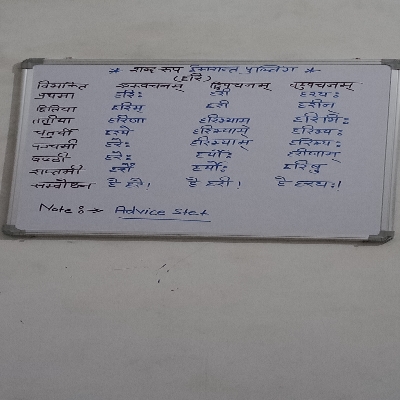 * शब्द रूप इकारान्त पुल्लिंग *
(हरि)
विभक्ति एकवचनम् द्विवचनम् बहुवचनम्
प्रथमा हरिः हरी हरयः
द्वितिया हरिम् हरी हरीन्
तृतीया हरिणा हरिभ्याम् हरिभिः
चतुर्थी हरये हरिभ्याम् हरिभ्यः
पञ्चमी हरेः हरिभ्याम् हरिभ्यः
षष्ठी हरेः हर्योः हरीणाम्
सप्तमी हरौ हर्योः हरिषु
सम्बोधन हे हरे! हे हरी! हे हरयः!
Note :→ Advice stet